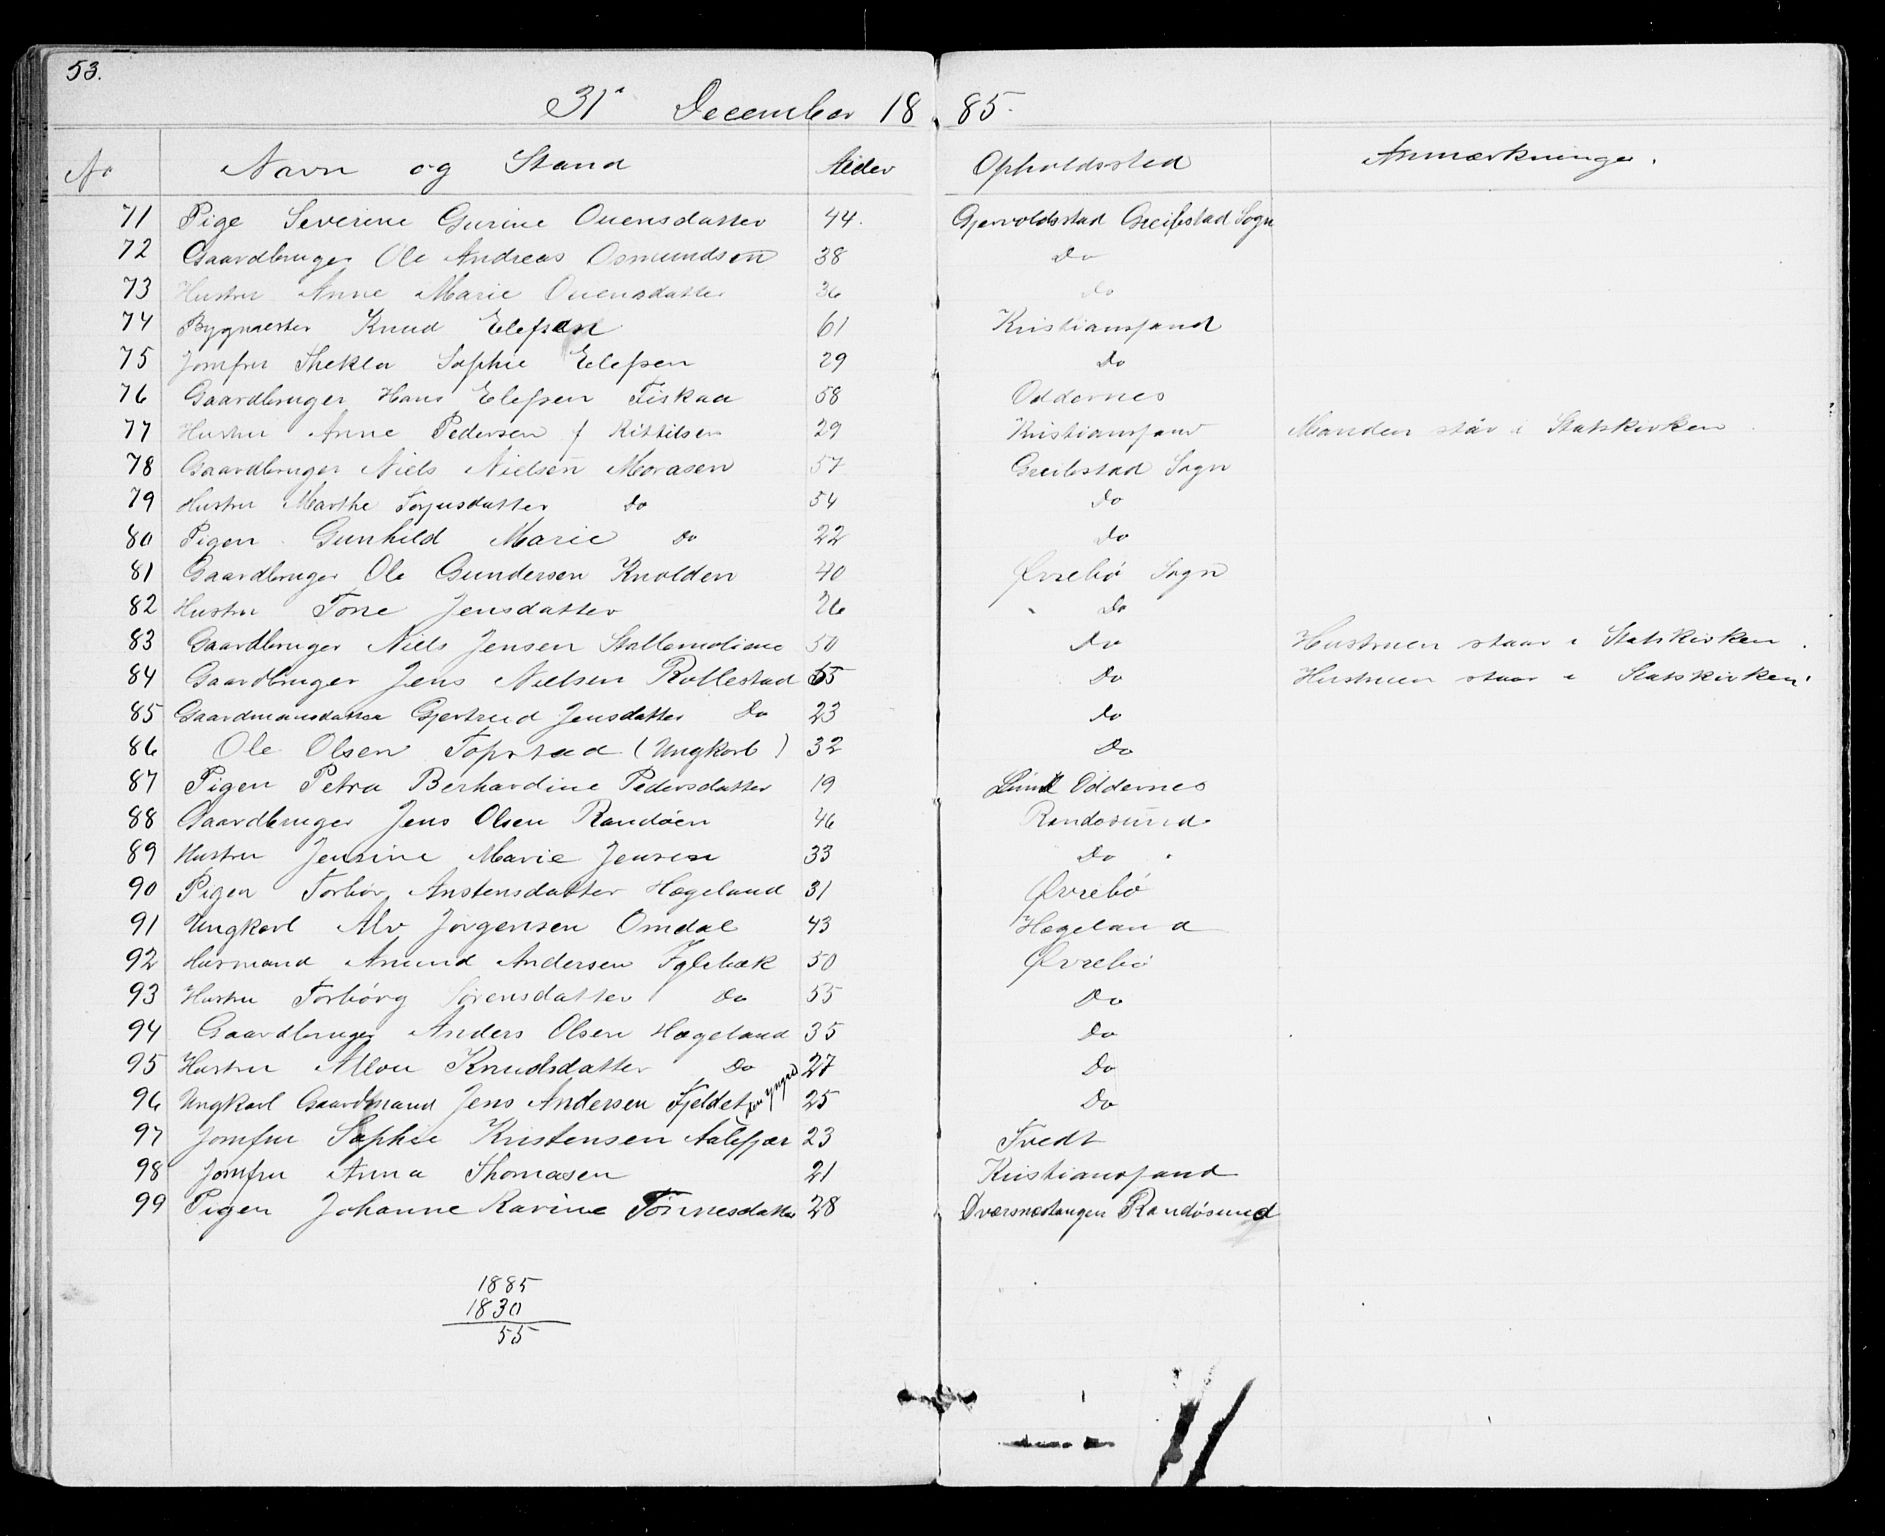 53.
31' December 1885.
No Navn og Stand Alder Opholdssted Anmærkninger.
71 Pige Severine Gurine Ouensdatter 44. Gjervoldsstad Greibstad Sogn
72 Gaardbruger Ole Andreas Osmundsen 38 Do
73 Hustru Anne Marie Ouensdatter 36 Do
74 Bygmester Knud Elefsen 61 Kristiansand
75 Jomfru Thekla Sophie Elefsen 29 Do
76 Gaardbruger Hans Elefsen Fiskaa 58 Oddernes
77 Hustru Anne Pedersen f Kittilsen 29 Kristiansand Manden står i Statskirken
78 Gaardbruger Niels Nielsen Morasen 57 Greibstad Sogn
79 Hustru Marthe Torjusdatter Do 54 Do
80 Pigen Gunhild Marie Do 22 Do
81 Gaardbruger Ole Gundersen Knolden 40 Øvrebø Sogn
82 Hustru Tone Jensdatter 26 Do
83 Gaardbruger Niels Jensen Stallemoliane 50 Do Hustruen staar i Statskirken.
84 Gaardbruger Jens Nielsen Rollestad 55 Do Hustruen staar i Statskirken.
85 Gaardmansdatter Gjertrud Jensdatter Do 23 Do
86 Ole Olsen Topstad (Ungkarl) 32 Do
87 Pigen Petra Berhardine Pedersdatter 19 Lund Oddernes
88 Gaardbruger Jens Olsen Randøen 46 Randøsund
89 Hustru Jensine Marie Jensen 33 Do
90 Pigen Torbør Anstensdatter Hægeland 31 Øvrebø
91 Ungkarl Alv Jørgensen Omdal 43 Hægeland
92 Husmand Anund Andersen Iglebæk 50 Øvrebø
93 Hustru Torbørg Sørensdatter Do 55 Do
94 Gaardbruger Anders Olsen Hægeland 35 Do
95 Hustru Allou Knudsdatter Do 27 Do
96 Ungkarl Gaardmand Jens Andersen Fjeldet den yngre 25 Do
97 Jomfru Sophie Kristensen Aalefjær 23 Tvedt
98 Jomfru Anna Thomasen 21 Kristiansand
99 Pigen Johanne Karine Tønnesdatter 28 Dværsnestangen Randøsund
1885
1830
55